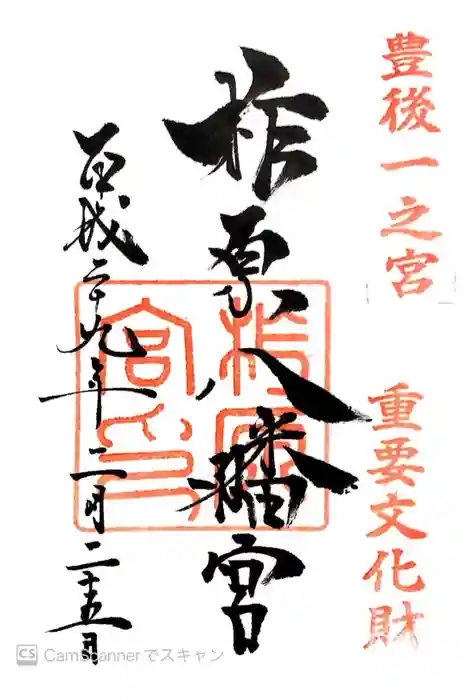 豊後一之宮
重要文化財
柞原八幡宮
平成二十九年二月二十五日
柞原宮印
CS CamScannerでスキャン